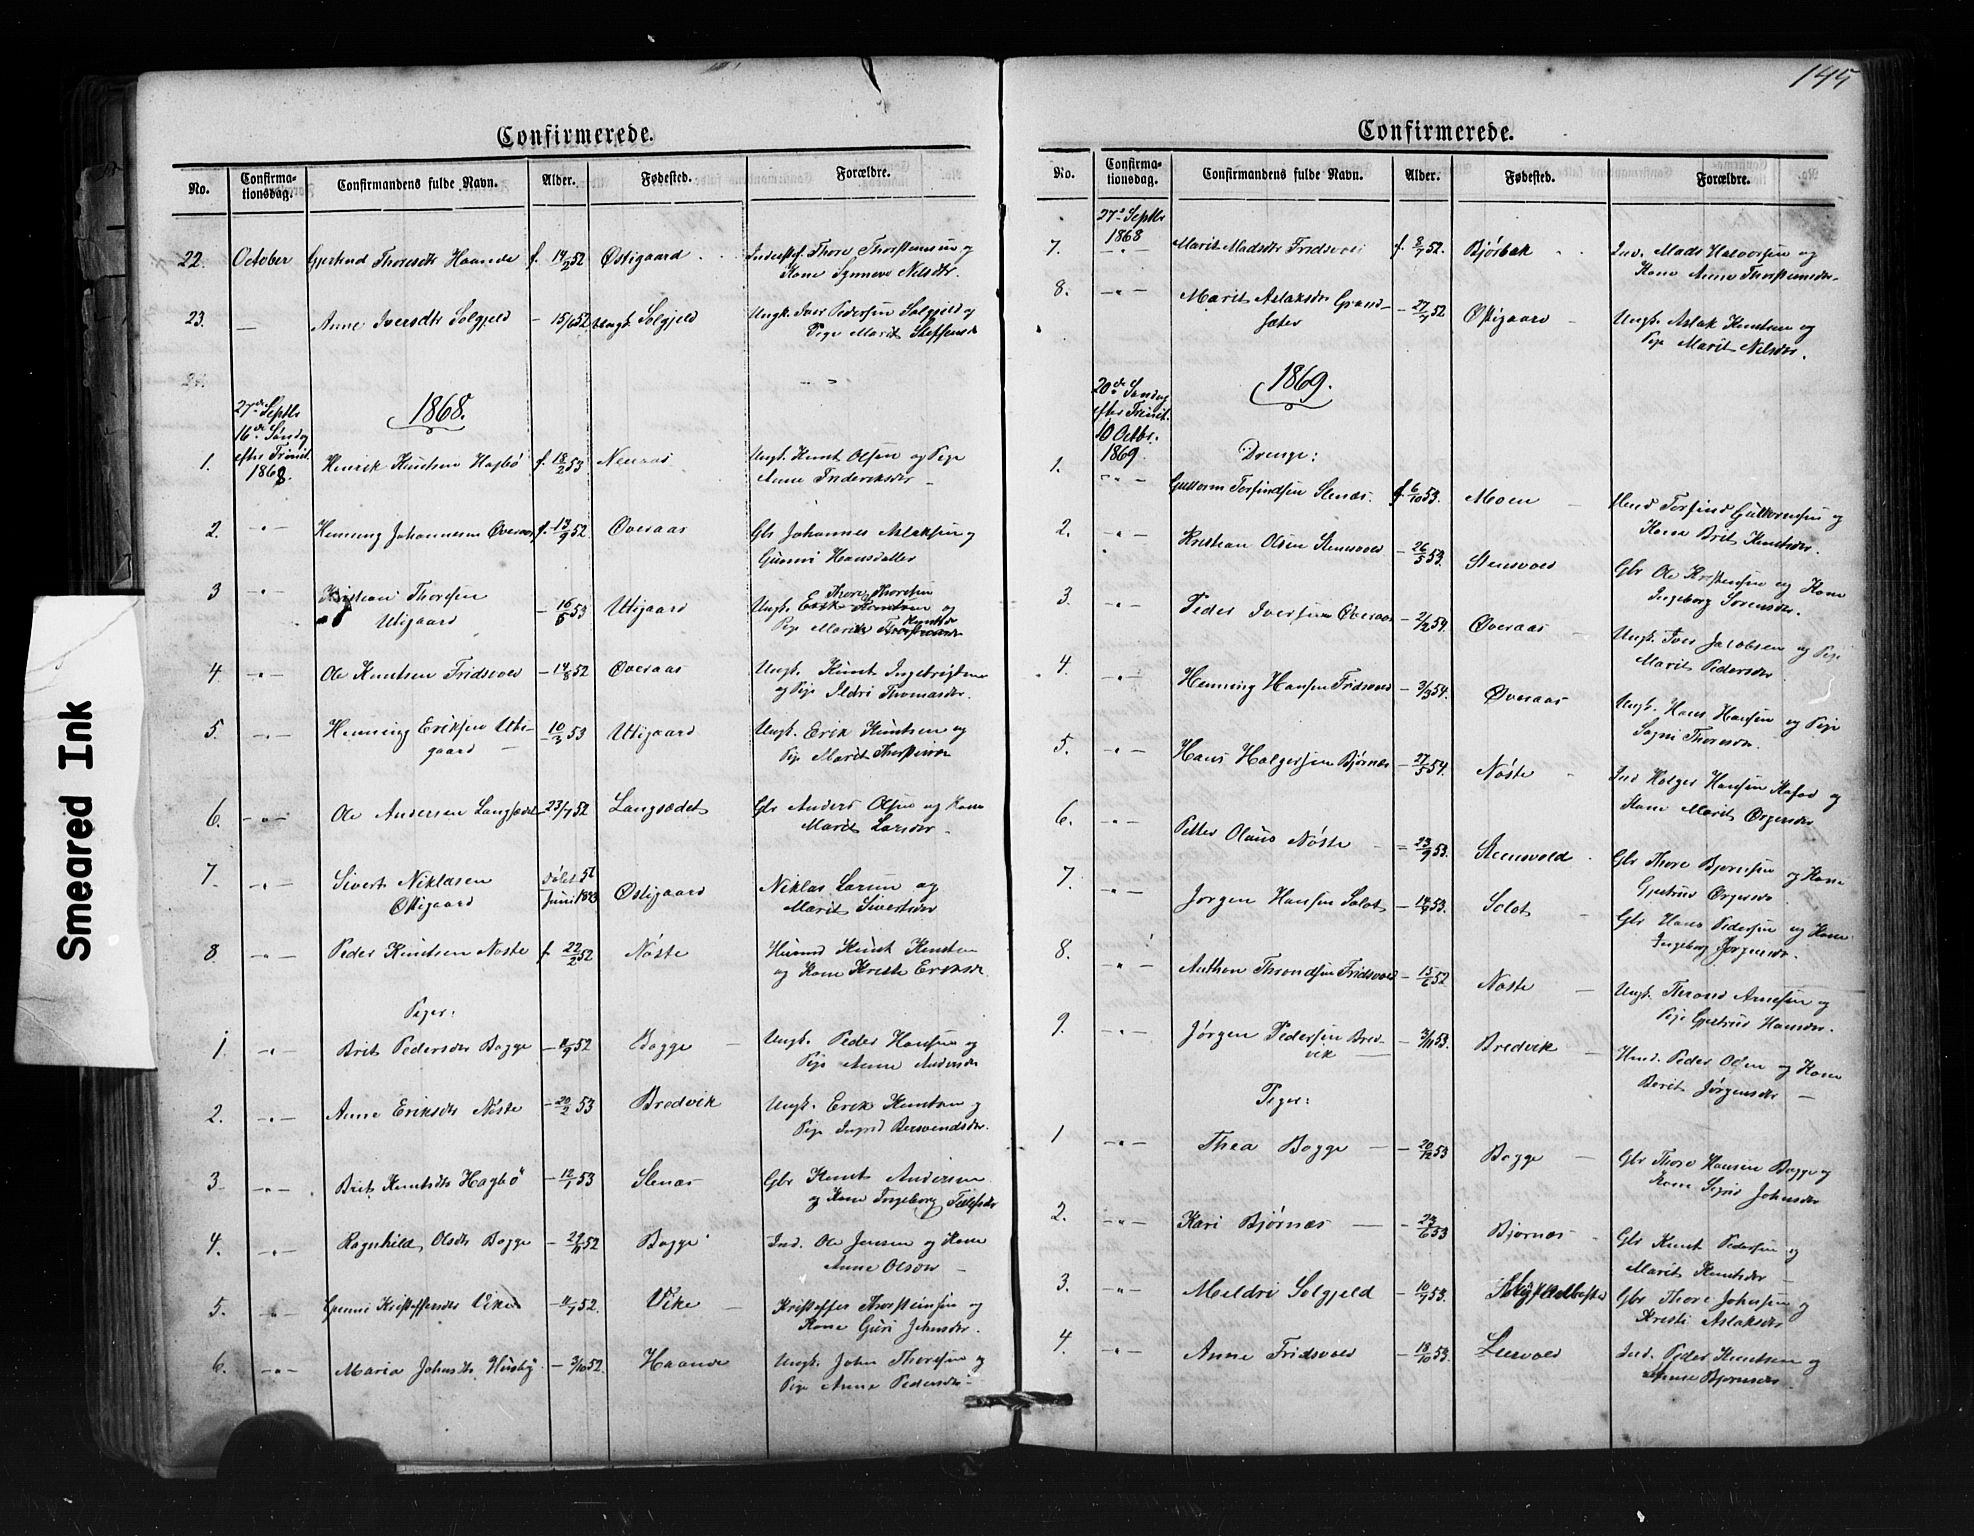 145
Smeared Ink
Confirmerede.
No. Confirma-tionsdag. Confirmandens fulde Navn. Alder. Fødested. Forældre.
22. October Gjertrud Thoresdtr Haande f. 14/2 52 Østigaard Inderstef. Thore Thorsteinsen og
Kone Synneve Nilsdtr.
23. — Anne Iversdtr Solgjeld — 15/6 52 Solgjeld Ungk. Iver Pedersen Solgjeld og
Pige Marit Steffensdr
24.
27de Septbr
16de Søndag
efter Trinit.
1868.
1868.
1. Henrik Knutsen Hagbø f. 18/2 53 Neraas Ungk. Knut Olsen og Pige
Anne Frideriksdr —
2. Henning Johannesen Øveraas f. 13/9 52 Øveraas Gbr Johannes Aslaksen og
Gunni Hansdatter
3 Kristian Thoresen — 16/6 53 Utigaard Thore Thoresen
Utigaard Ungk. Erik Knutsen og
Pige Marit Knutsdr
4 Ole Knutsen Fridsvold — 14/8 52 Øveraas Ungk. Knut Ingebrigtsen
og Pige Ildri Thomasdr.
5. Henning Eriksen Uti- — 10/3 53 Utigaard Ungk. Erik Knutsen og
gaard Pige Marit Thorsteinsdr
6. Ole Andersen Langsædet — 23/7 52 Langsædet Gbr Anders Olsen og Kone
Marit Larsdr —
7. Sivert Niklasen Juni 1853 Østigaard Niklas Larsen og
Østigaard Marit Sivertsdr
8 Peder Knutsen Nøste f. 22/2 52 Nøste Husmd Knut Knutsen
og Kone Kristi Eriksdr
Piger:
1. Brit Pedersdr Bogge — 11/9 52 Bogge Ungk. Peder Hansen og
Pige Anne Andersdr
2. Anne Eriksdtr Nøste — 20/2 53 Bredvik Ungk. Erik Knutsen og
Pige Ingrid Bersvendsdr.
3 Brit Knutsdtr Hagbø — 12/1 53 Slenes Gbr Knut Andersen
og Kone Ingeborg
4. Ragnhild Olsdtr Bogge Bogge Ind. Ole Jensen og Kone
Anne Olsdtr —
5. Gunni Kristoffersdtr Vike — 11/7 52. Vike — Kristoffer Thorsteinsen og
Kone Guri Johnsdr.
6. Maria Johnsdtr Husby. — 3/10 52. Haande Ungk. John Thoresen og
Pige Anne Pedersdr
Confirmerede.
No. Confirma-tionsdag. Confirmandens fulde Navn. Alder. Fødested. Forældre.
27de Septbr
1868
7. Marit Madsdtr Fridsvold f. 8/7 52. Bjørbak Ind. Mads Halvorsen og
Kone Anne Thorsteinsdr
8. Marit Aslaksdr Grand- — 27/7 52 Østigaard — Ungk. Aslak Knutsen og
sæter Pige Marit Nilsdr.
1869.
20de Søndag
efter Trinit.
10 Octbr.
1869.
Drenge:
1. Guttorm Torfindsen Slenes. f. 6/10 53. Moen — Husmd Torfind Guttormsen og
Kone Brit Knutsdr.
2. Kristian Olsen Stensvold — 26/5 53. Stensvold Gbr Ole Kristensen og Kone
Ingeborg Sørensdr.
3. Peder Iversen Øveraas — 2/2 54. Øveraas — Ungk. Iver Jacobsen og Pige
Marit Pedersdr
4. Henning Hansen Fridsvold — 3/3 54. Øveraas Ungk. Hans Hansen og Pige
Thoresdr.
5. Hans Holgersen Bjørnes — 27/5 54. Nøste Ind Holger Hansen og
Kone Marit Ørgensdr
6. Petter Olaus Nøste — 23/9 53. Steensvold Gbr Thore Bjørnsen og Kone
Gjertrud Ørgensdr
7. Jørgen Hansen Solot Solot — Gbr Hans Pedersen og Kone
Ingeborg Jørgensdr.
8. Anthon Throndsen Fridsvold — 15/6 52 Nøste — Ungk. Thrond Arnesen og
Pige Gjertrud Hansdr.
9. Jørgen Pedersen Bred- Bredvik — Husmd. Peder Olsen og Kone
vik — Berit Jørgensdr —
Piger:
1 Thea Bogge — — 20/12 53 Bogge — Gbr Thore Hansen Bogge og
Kone Sigrid Johnsdr
2. Kari Bjørnes — Bjørnes Gbr Knut Pedersen og
Marit Knutsdr —
3. Meldri Solgjeld — 10/9 53. Gbr Thore Johnsen og
Kristi Aslaksdr
4. Anne Fridsvold — 18/10 53. Ind. Peder Knutsen og
Bjørnsdr.